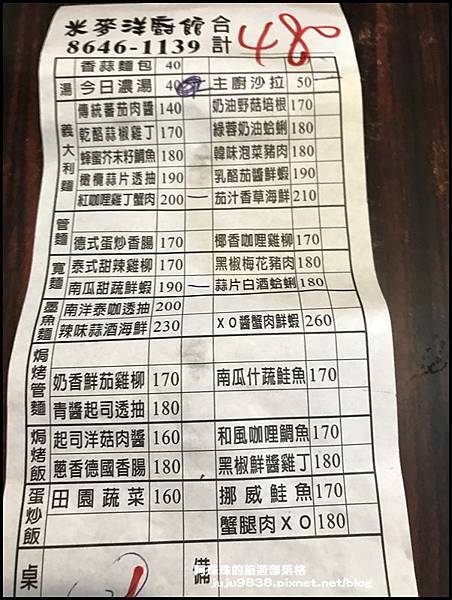 米麥洋廚館 合計 480
8646-1139
香蒜麵包 40
湯 今日濃湯 40 主廚沙拉 50
義大利麵
傳統蕃茄肉醬 140 奶油野菇培根 170
乾酪蒜椒雞丁 170 綠蓉奶油蛤蜊 180
蜂蜜芥末籽鯛魚 180 韓味泡菜豬肉 180
橄欖蒜片透抽 190 乳酪茄醬鮮蝦 190
紅咖哩雞丁蟹肉 200 一 茄汁香草海鮮 210
管麵
德式蛋炒香腸 170 椰香咖哩雞柳 170
寬麵
泰式甜辣雞柳 170 黑椒梅花豬肉 180
南瓜甜蔬鮮蝦 190 一 蒜片白酒蛤蜊 180
墨魚麵
南洋泰咖透抽 200
辣味蒜酒海鮮 230 XO醬蟹肉鮮蝦 260
焗烤管麵
奶香鮮茄雞柳 170 南瓜什蔬鮭魚 170
青醬起司透抽 180
焗烤飯
起司洋菇肉醬 160 和風咖哩鯛魚 170
蔥香德國香腸 180 黑椒鮮醬雞丁 180
蛋炒飯
田園蔬菜 160 挪威鮭魚 170
蟹腿肉XO 180
桌 備
的旅遊部落格
juju9838.pixnet.net/blog